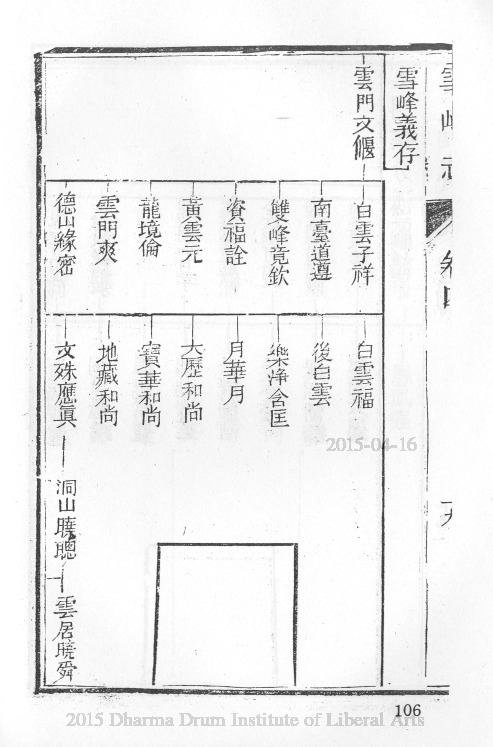 雪峰志
卷四
十九
雪峰義存
雲門文偃
白雲子祥
南臺道遵
雙峰竟欽
資福詮
黃雲元
龍境倫
雲門爽
德山緣密
白雲福
後白雲
樂淨含匡
月華月
大歷和尚
寶華和尚
地藏和尚
文殊應真
洞山曉聰
雲居曉舜
2015-04-16
106
2015 Dharma Drum Institute of Liberal Arts